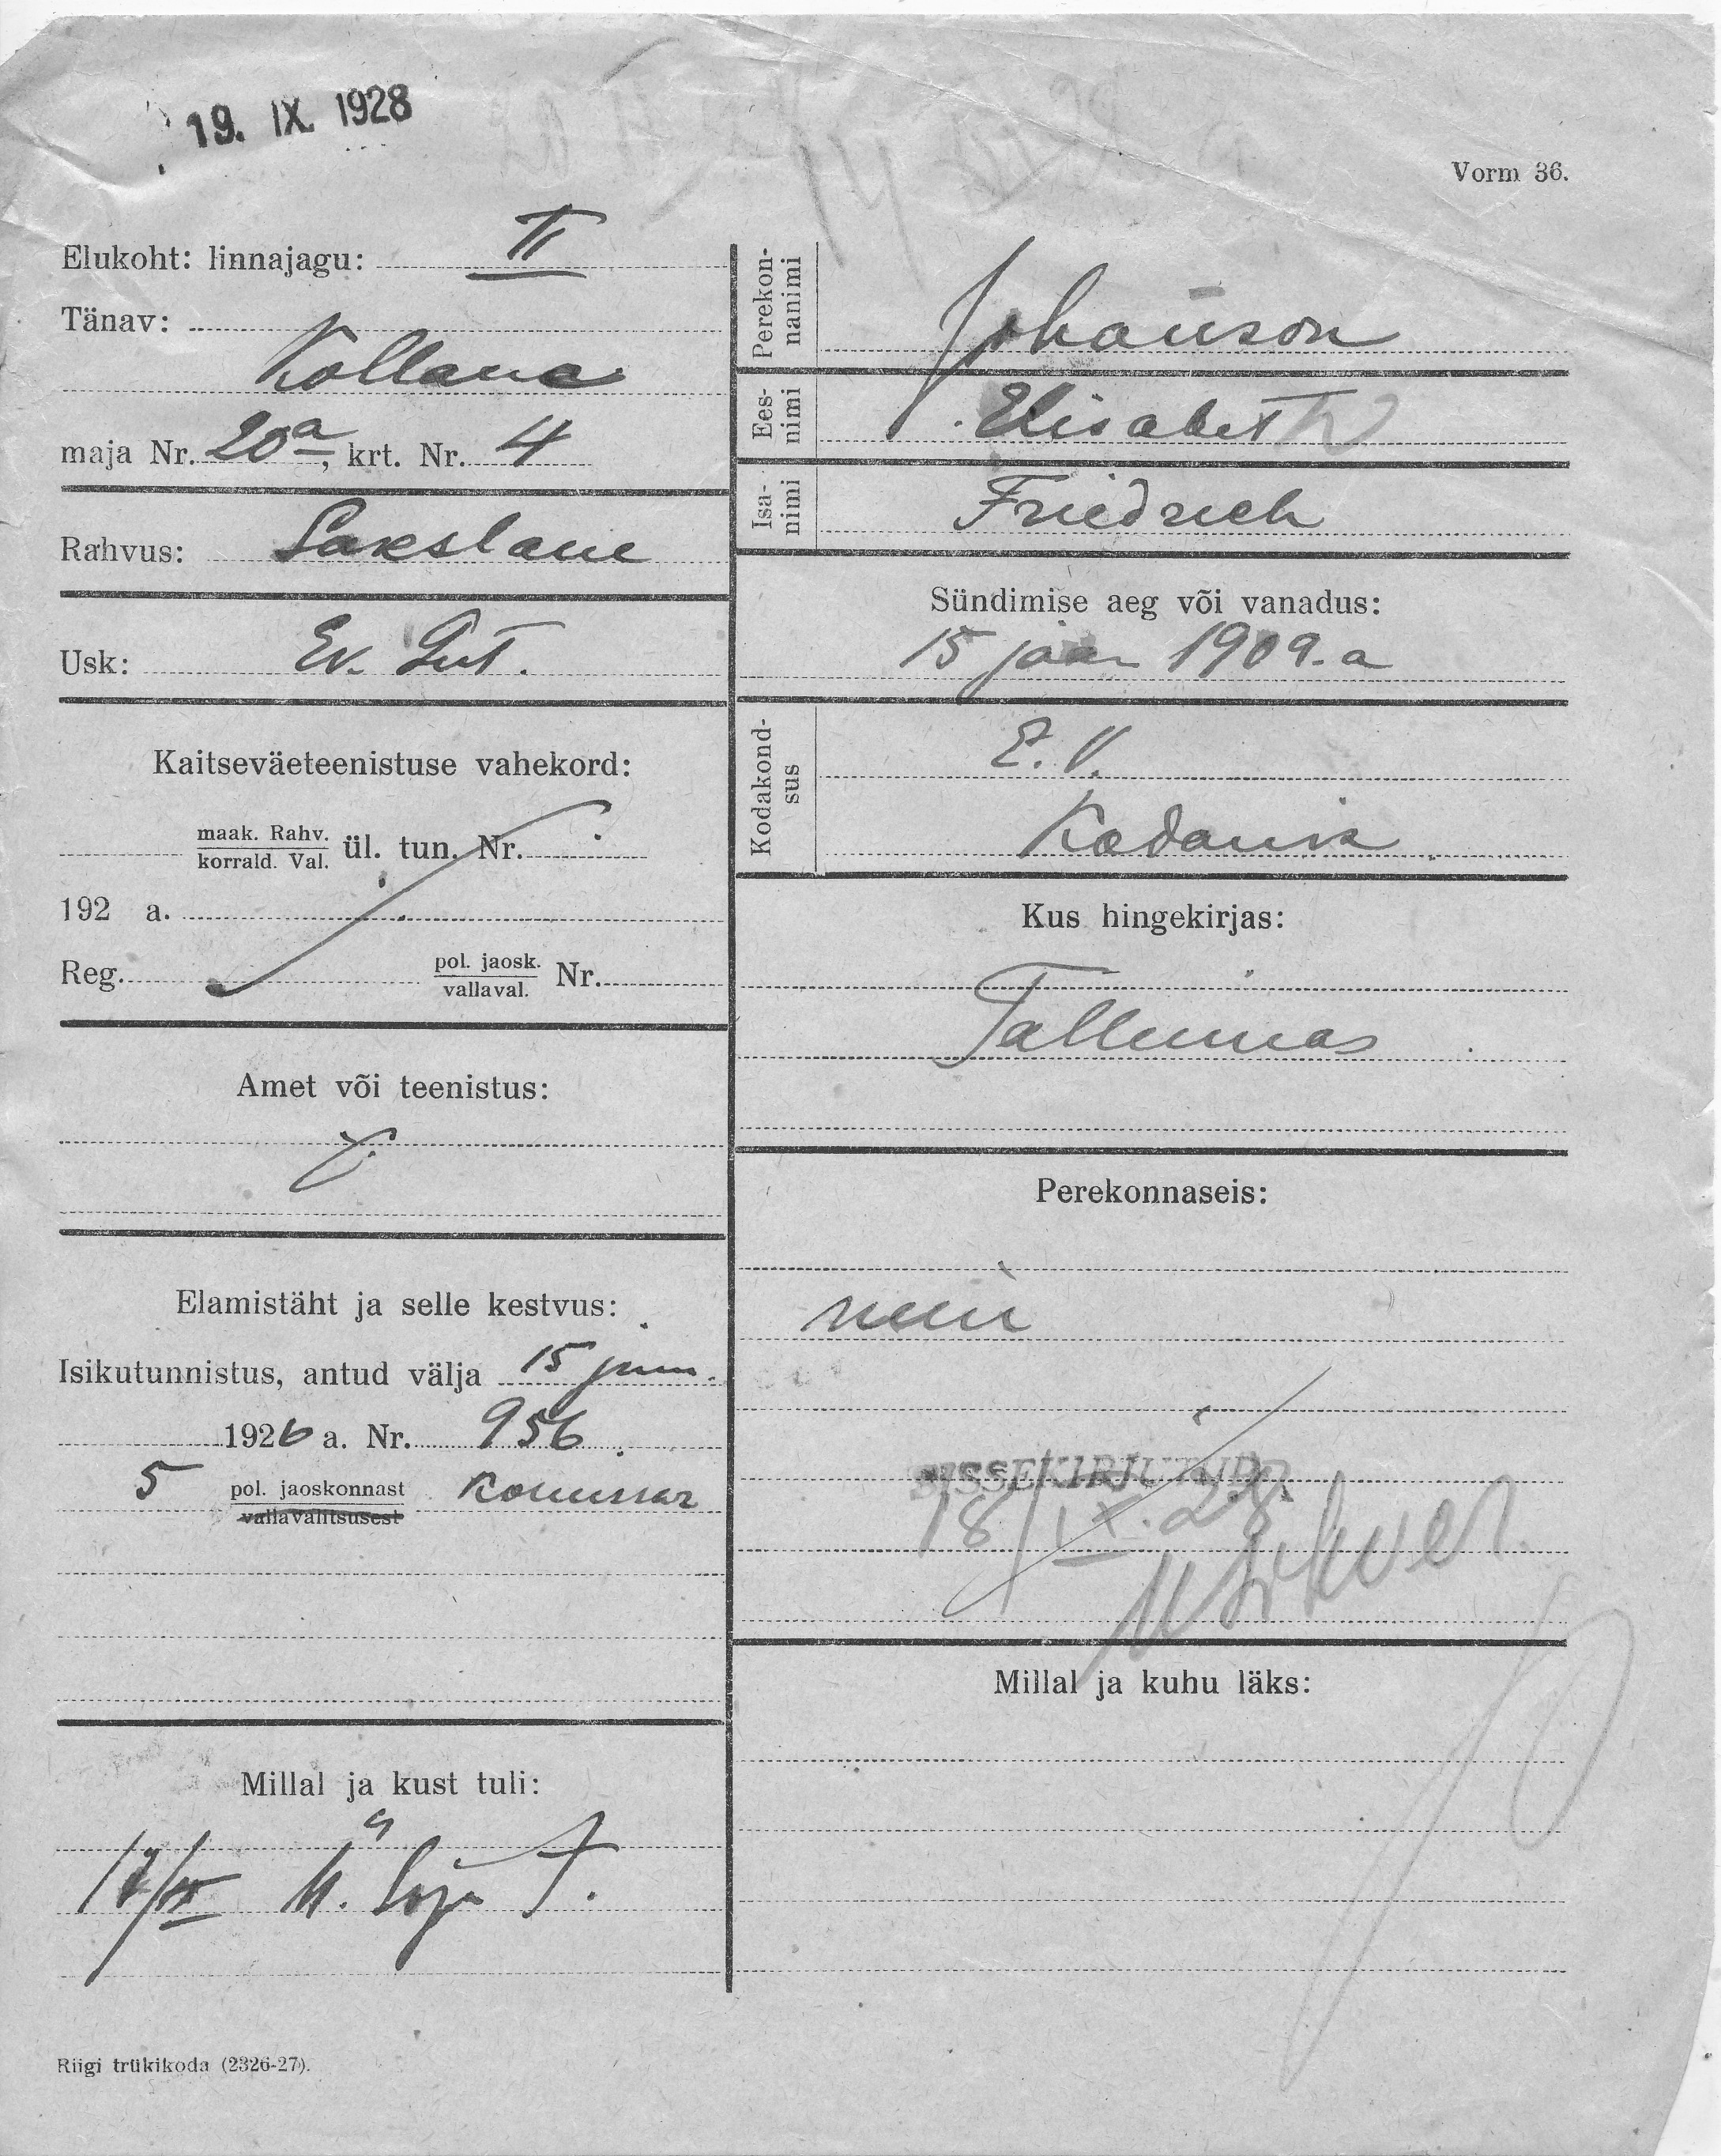 19. IX. 1928
Vorm 36.
Elukoht: linnajagu: II
Tänav:
Kollane
maja Nr. 20a, krt. Nr. 4
Rahvus: Sakslane
Usk: Ev. Lut.
Kaitseväeteenistuse vahekord:
maak. Rahv.
korrald. Val. ül. tun. Nr.
192 a.
Reg. pol. jaosk.
vallaval. Nr.
Amet või teenistus:
Elamistäht ja selle kestvus:
Isikutunnistus, antud välja 15 juuni
1926 a. Nr. 956
5 pol. jaoskonnast Komissar
vallavalitsusest
Millal ja kust tuli:
17/IX
Riigi trükikoda (2326-27).
Perekon-
nanimi
Johanson
Ees-
nimi
Elisabeth
Isa-
nimi
Friedrich
Sündimise aeg või vanadus:
15 jaan 1909. a
Kodakond-
sus
E. V.
Kodanik
Kus hingekirjas:
Tallinnas
Perekonnaseis:
neiu
SISSEKIRJUTUD
18/IX. 28
Millal ja kuhu läks: